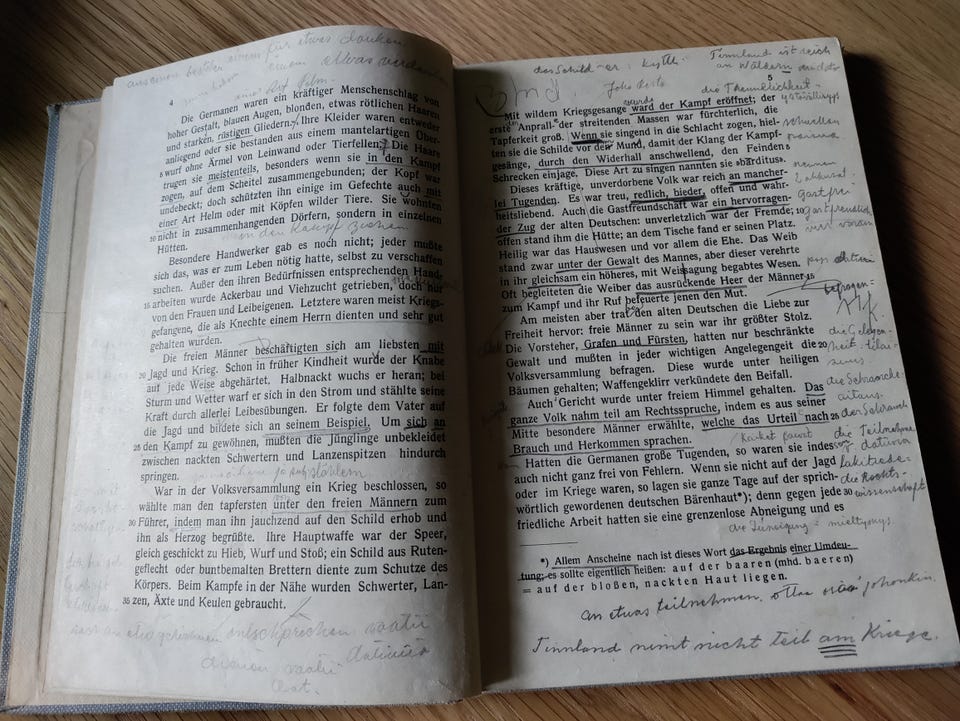 für etwas danken
4
Die Germanen waren ein kräftiger Menschenschlag von
hoher Gestalt, blauen Augen, blonden, etwas rötlichen Haaren
und starken, rüstigen Gliedern. Ihre Kleider waren entweder
anliegend oder sie bestanden aus einem mantelartigen Über-
5 wurf ohne Ärmel von Leinwand oder Tierfellen. Die Haare
trugen sie meistenteils, besonders wenn sie in den Kampf
zogen, auf dem Scheitel zusammengebunden; der Kopf war
undebeckt; doch schützten ihn einige im Gefechte auch mit
einer Art Helm oder mit Köpfen wilder Tiere. Sie wohnten
10 nicht in zusammenhangenden Dörfern, sondern in einzelnen
Hütten.
in den Kampf ziehen
Besondere Handwerker gab es noch nicht; jeder mußte
sich das, was er zum Leben nötig hatte, selbst zu verschaffen
suchen. Außer den ihren Bedürfnissen entsprechenden Hand-
15 arbeiten wurde Ackerbau und Viehzucht getrieben, doch nur
von den Frauen und Leibeigenen. Letztere waren meist Kriegs-
gefangene, die als Knechte einem Herrn dienten und sehr gut
gehalten wurden.
Die freien Männer beschäftigten sich am liebsten mit
20 Jagd und Krieg. Schon in früher Kindheit wurde der Knabe
auf jede Weise abgehärtet. Halbnackt wuchs er heran; bei
Sturm und Wetter warf er sich in den Strom und stählte seine
Kraft durch allerlei Leibesübungen. Er folgte dem Vater auf
die Jagd und bildete sich an seinem Beispiel. Um sich an
25 den Kampf zu gewöhnen, mußten die Jünglinge unbekleidet
zwischen nackten Schwertern und Lanzenspitzen hindurch
springen.
War in der Volksversammlung ein Krieg beschlossen, so
wählte man den tapfersten unter den freien Männern zum
30 Führer, indem man ihn jauchzend auf den Schild erhob und
ihn als Herzog begrüßte. Ihre Hauptwaffe war der Speer,
gleich geschickt zu Hieb, Wurf und Stoß; ein Schild aus Ruten-
geflecht oder buntbemalten Brettern diente zum Schutze des
Körpers. Beim Kampfe in der Nähe wurden Schwerter, Lan-
35 zen, Äxte und Keulen gebraucht.
entsprechen vaatii
datiivia
der Schild -er
Finnland ist reich
an Wäldern
5
Mit wildem Kriegsgesange ward der Kampf eröffnet; der
wurde
erste Anprall der streitenden Massen war fürchterlich, die
Tapferkeit groß. Wenn sie singend in die Schlacht zogen, hiel-
ten sie die Schilde vor den Mund, damit der Klang der Kampf-
gesänge, durch den Widerhall anschwellend, den Feinden 5
Schrecken einjage. Diese Art zu singen nannten sie »barditus».
Dieses kräftige, unverdorbene Volk war reich an mancher-
lei Tugenden. Es war treu, redlich, bieder, offen und wahr-
heitsliebend. Auch die Gastfreundschaft war ein hervorragen-
der Zug der alten Deutschen: unverletzlich war der Fremde; 10
offen stand ihm die Hütte; an dem Tische fand er seinen Platz.
Heilig war das Hauswesen und vor allem die Ehe. Das Weib
stand zwar unter der Gewalt des Mannes, aber dieser verehrte
in ihr gleichsam ein höheres, mit Weissagung begabtes Wesen.
Oft begleiteten die Weiber das ausrückende Heer der Männer 15
zum Kampf und ihr Ruf befeuerte jenen den Mut.
Am meisten aber tragen die alten Deutschen die Liebe zur
Freiheit hervor: freie Männer zu sein war ihr größter Stolz.
Die Vorsteher, Grafen und Fürsten, hatten nur beschränkte
Gewalt und mußten in jeder wichtigen Angelegenheit die 20
Volksversammlung befragen. Diese wurde unter heiligen
Bäumen gehalten; Waffengeklirr verkündete den Beifall.
Auch Gericht wurde unter freiem Himmel gehalten. Das
ganze Volk nahm teil am Rechtsspruche, indem es aus seiner
Mitte besondere Männer erwählte, welche das Urteil nach 25
Brauch und Herkommen sprachen.
Hatten die Germanen große Tugenden, so waren sie indes
auch nicht ganz frei von Fehlern. Wenn sie nicht auf der Jagd
oder im Kriege waren, so lagen sie ganze Tage auf der sprich-
wörtlich gewordenen deutschen Bärenhaut*); denn gegen jede 30
friedliche Arbeit hatten sie eine grenzenlose Abneigung und es
schwellen
gastfrei
befragen =
die Gelegen-
heit
die Teilnahme
die Rechts-
wissenschaft
*) Allem Anscheine nach ist dieses Wort das Ergebnis einer Umdeu-
tung; es sollte eigentlich heißen: auf der baaren (mhd. baeren)
= auf der bloßen, nackten Haut liegen.
an etwas teilnehmen. ottaa osaa johonkin.
Finnland nimt nicht teil am Kriege.